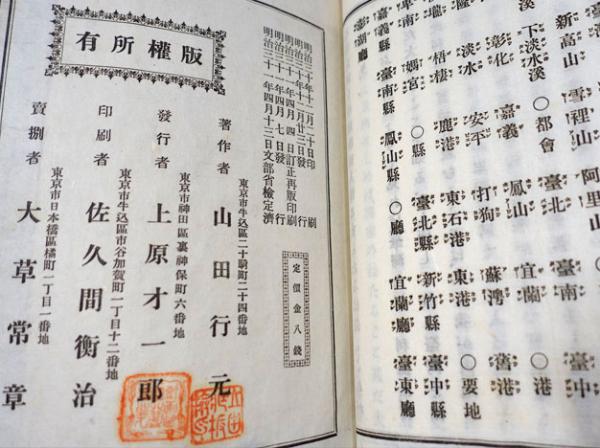 新高山 雪裡山 阿里山
溪 下淡水溪 ○都會 臺北 臺南 臺中
隆 彰化 嘉義 鳳山 宜蘭 ○港
淡水 安平 打狗 蘇灣 舊港
梧棲 鹿港 東石港 東港 ○要地
卑南 媽宮 ○縣 臺北縣 新竹縣 臺中縣
嘉義縣 臺南縣 鳳山縣 ○廳 宜蘭廳 臺東廳
廳
版權所有
明治三十年十一月二十日印刷
明治三十年十一月廿三日發行
明治三十一年四月四日訂正再版印刷
明治三十一年四月七日發行
明治三十一年四月十三日文部省檢定濟
定價金八錢
東京市牛込區二十騎町二十四番地
著作者 山田行元
東京市神田區裏神保町六番地
發行者 上原才一郎
東京市牛込區市谷加賀町一丁目十二番地
印刷者 佐久間衡治
東京市日本橋區橘町一丁目一番地
賣捌者 大草常章